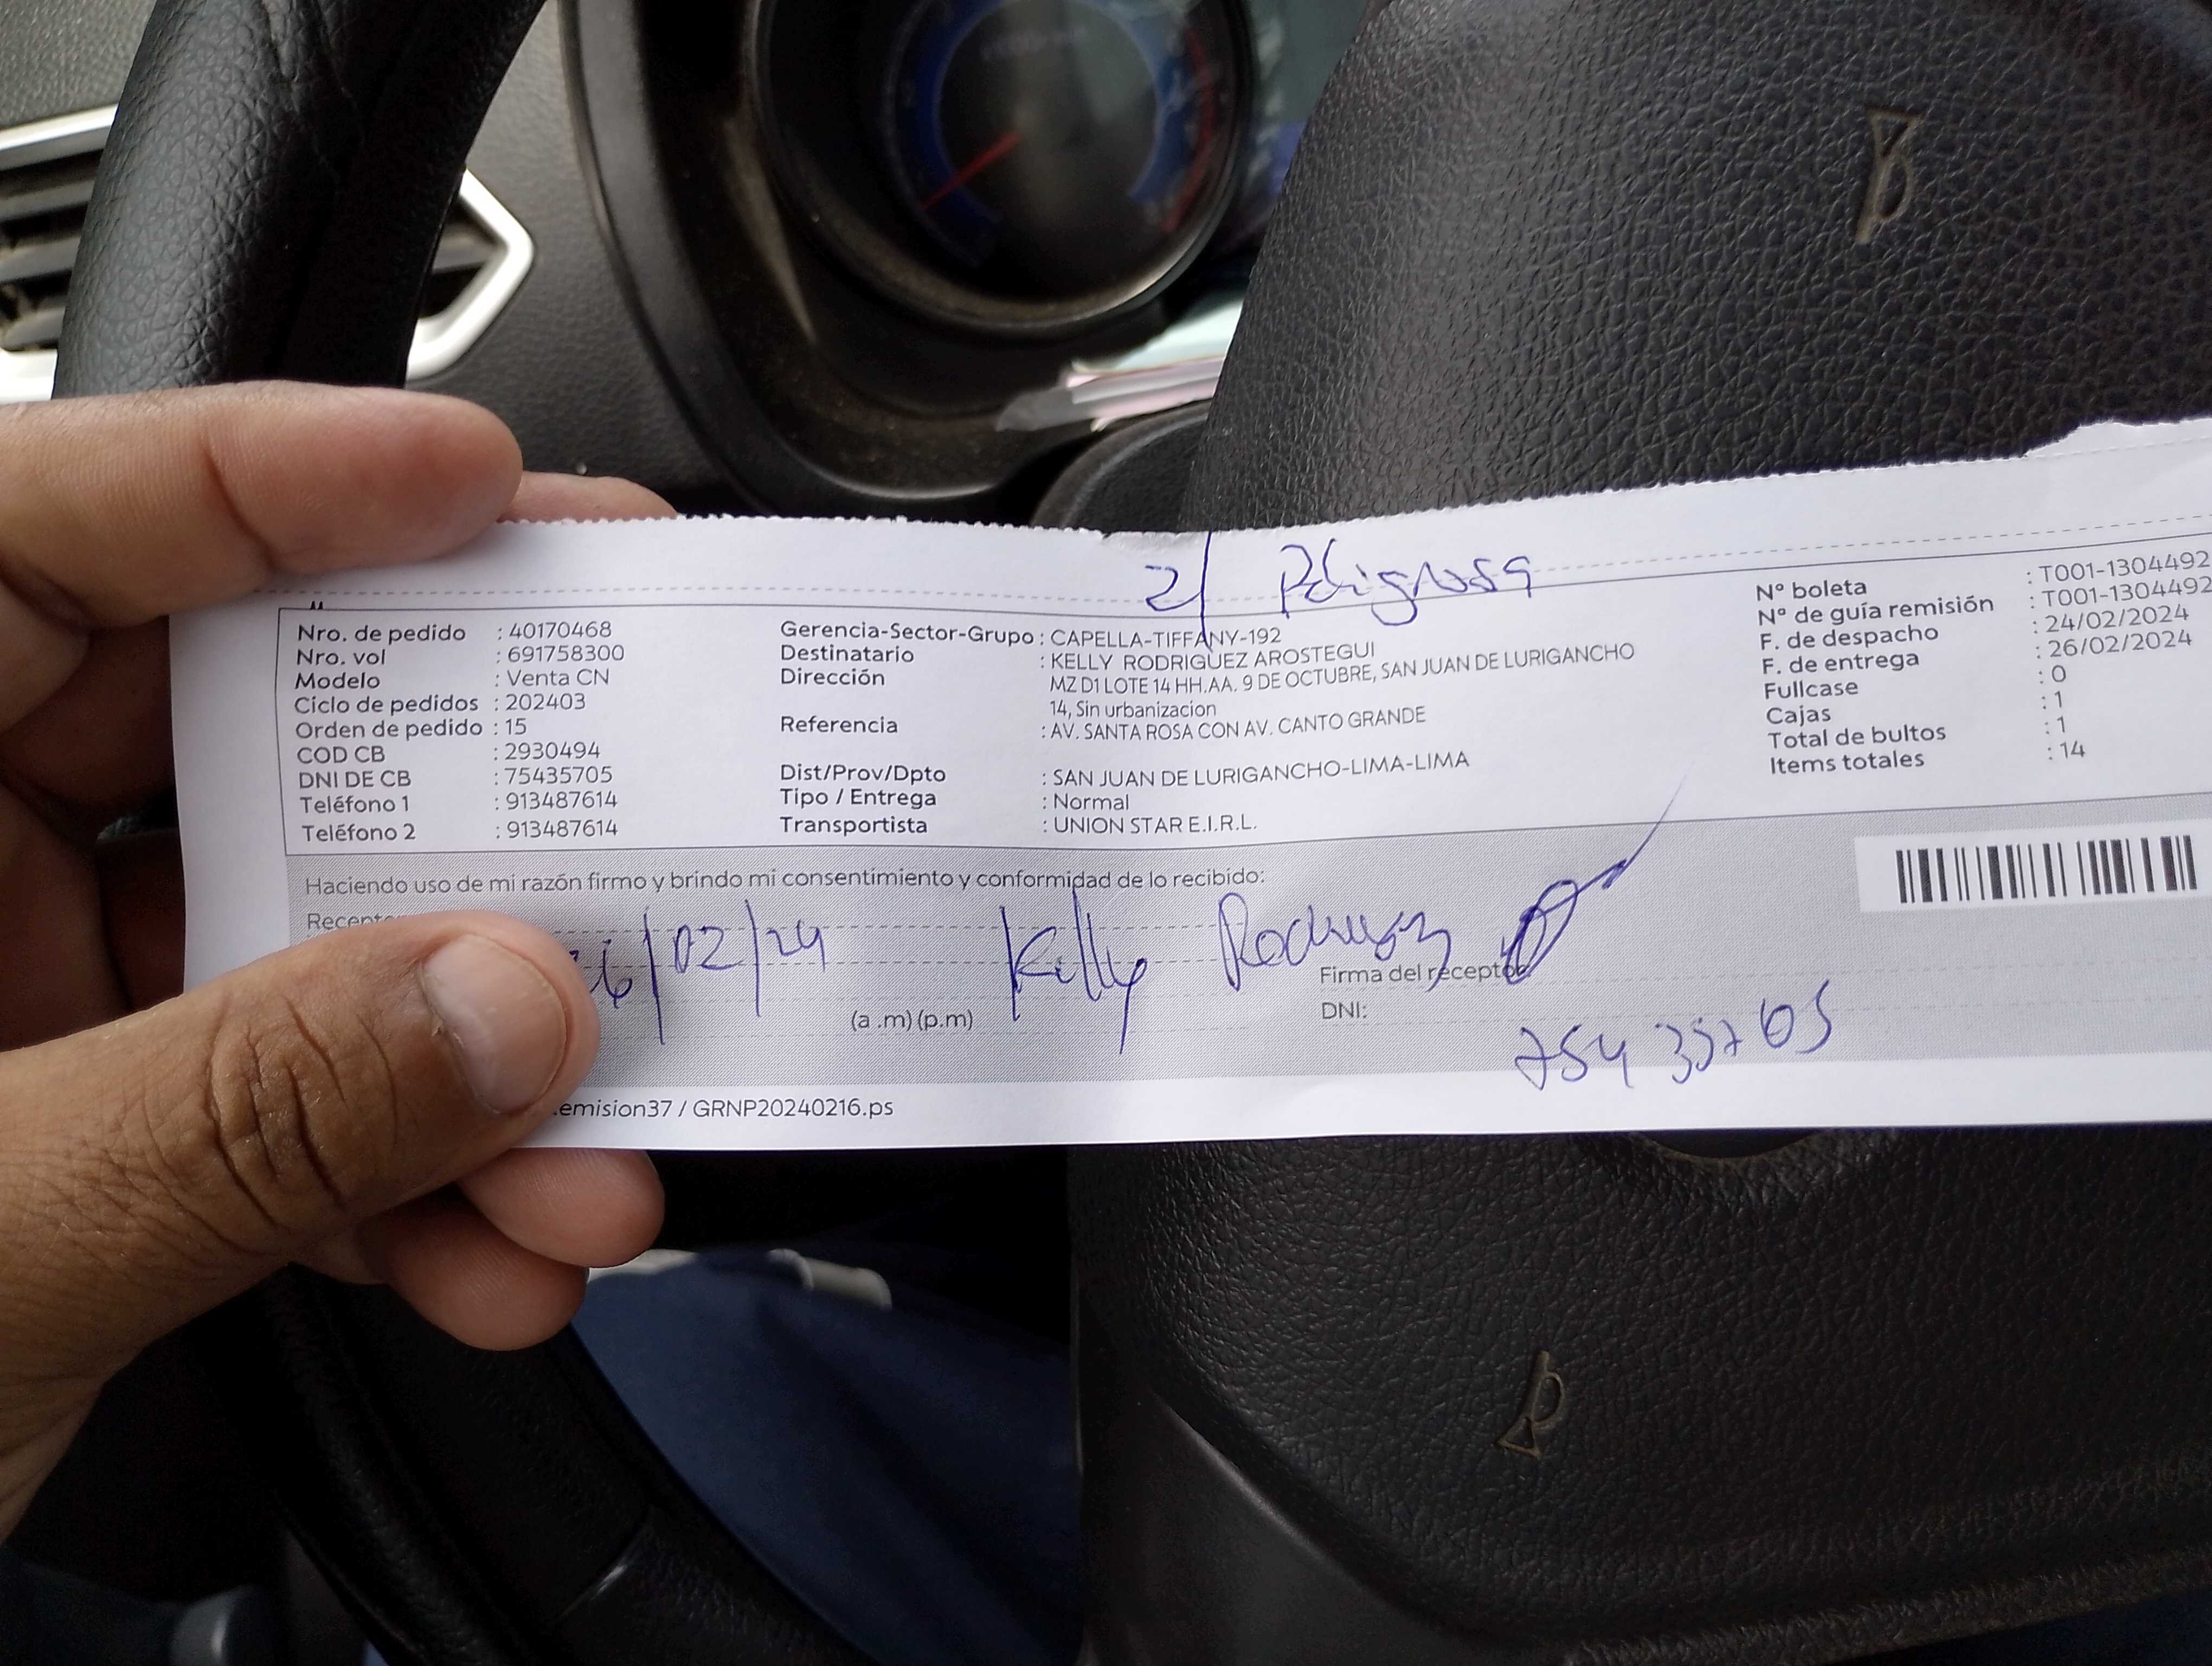 2/ Peligrosa
Nro. de pedido : 40170468
Nro. vol : 691758300
Modelo : Venta CN
Ciclo de pedidos : 202403
Orden de pedido : 15
COD CB : 2930494
DNI DE CB : 75435705
Teléfono 1 : 913487614
Teléfono 2 : 913487614
Gerencia-Sector-Grupo : CAPELLA-TIFFANY-192
Destinatario : KELLY RODRIGUEZ AROSTEGUI
Dirección : MZ D1 LOTE 14 HH.AA. 9 DE OCTUBRE, SAN JUAN DE LURIGANCHO
14, Sin urbanizacion
Referencia : AV. SANTA ROSA CON AV. CANTO GRANDE
Dist/Prov/Dpto : SAN JUAN DE LURIGANCHO-LIMA-LIMA
Tipo / Entrega : Normal
Transportista : UNION STAR E.I.R.L.
N° boleta : T001-1304492
N° de guía remisión : T001-1304492
F. de despacho : 24/02/2024
F. de entrega : 26/02/2024
Fullcase : 0
Cajas : 1
Total de bultos : 1
Items totales : 14
Haciendo uso de mi razón firmo y brindo mi consentimiento y conformidad de lo recibido:
Recepto
26/02/24 Kelly Rodriguez
Firma del receptor
(a .m) (p.m) DNI:
75435705
.emision37 / GRNP20240216.ps